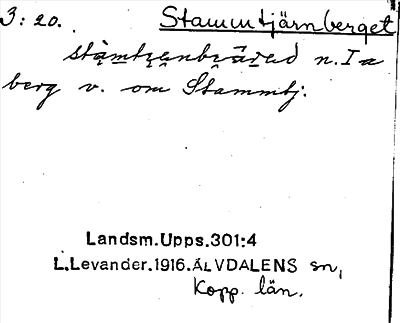 3:20. Stammtjärnberget
n. I a
berg v. om Stammtj.
Landsm.Upps.301:4
L.Levander.1916.ÄLVDALENS sn,
Kopp. län.